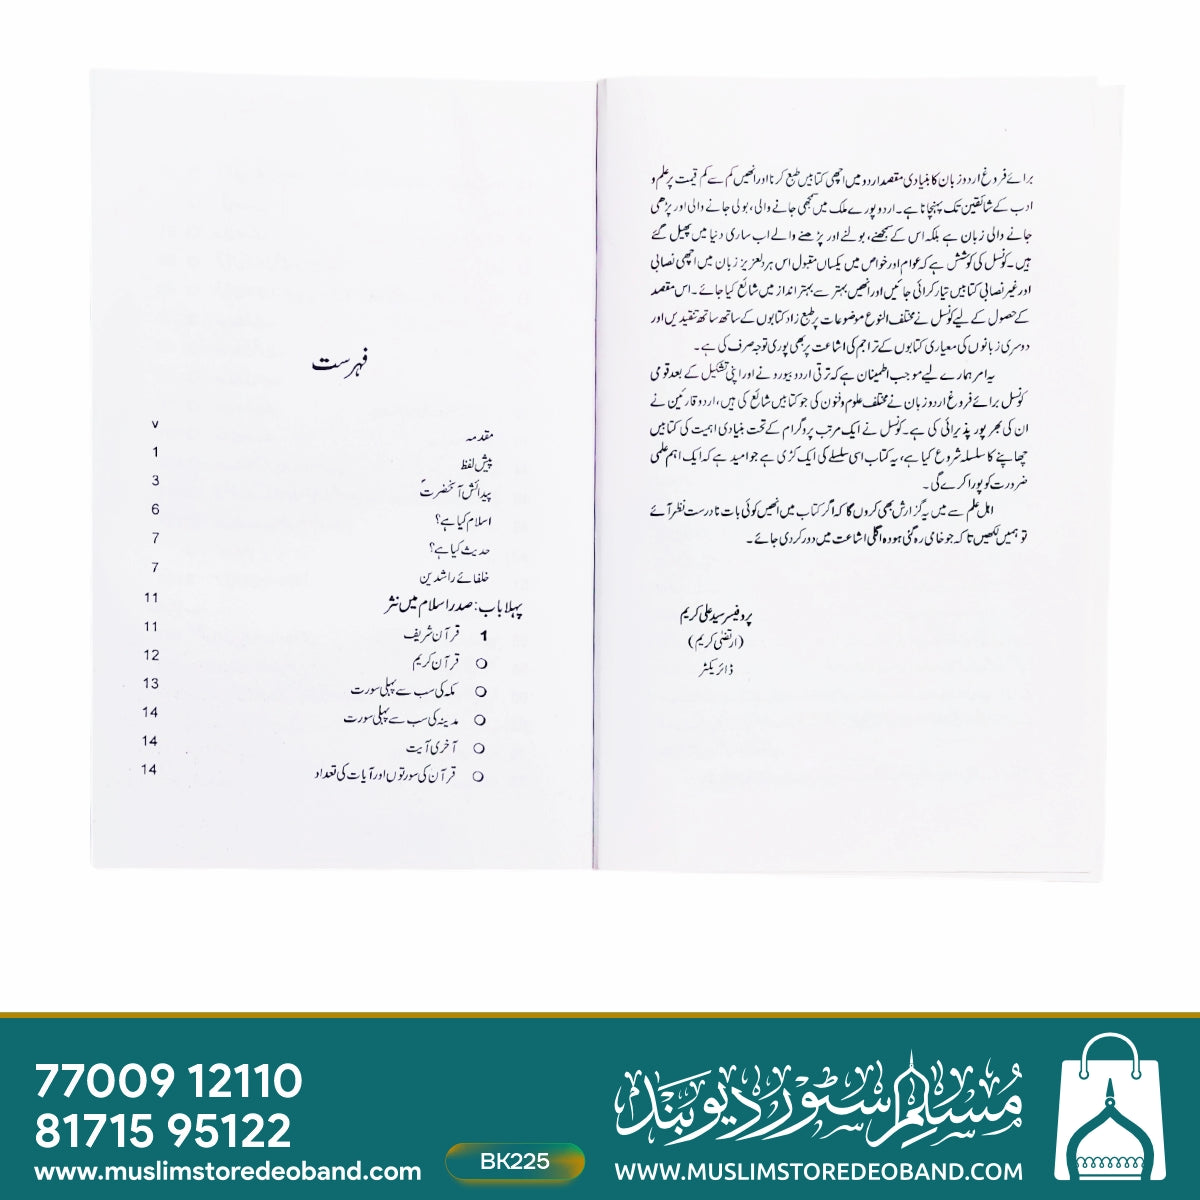 برائے فروغ اردو زبان کا بنیادی مقصد اردو میں اچھی کتابیں طبع کرنا اور انھیں کم سے کم قیمت پر علم و
ادب کے شائقین تک پہنچانا ہے۔ اردو پورے ملک میں سمجھی جانے والی، بولی جانے والی اور پڑھی
جانے والی زبان ہے بلکہ اس کے سمجھنے، بولنے اور پڑھنے والے اب ساری دنیا میں پھیل گئے
ہیں۔ کونسل کی کوشش ہے کہ عوام اور خواص میں یکساں مقبول اس ہردلعزیز زبان میں اچھی نصابی
اور غیر نصابی کتابیں تیار کرائی جائیں اور انھیں بہتر سے بہتر انداز میں شائع کیا جائے۔ اس مقصد
کے حصول کے لیے کونسل نے مختلف النوع موضوعات پر طبع زاد کتابوں کے ساتھ ساتھ تنقیدیں اور
دوسری زبانوں کی معیاری کتابوں کے تراجم کی اشاعت پر بھی پوری توجہ صرف کی ہے۔
یہ امر ہمارے لیے موجب اطمینان ہے کہ ترقی اردو بیورو نے اور اپنی تشکیل کے بعد قومی
کونسل برائے فروغ اردو زبان نے مختلف علوم و فنون کی جو کتابیں شائع کی ہیں، اردو قارئین نے
ان کی بھرپور پذیرائی کی ہے۔ کونسل نے ایک مرتب پروگرام کے تحت بنیادی اہمیت کی کتابیں
چھاپنے کا سلسلہ شروع کیا ہے، یہ کتاب اسی سلسلے کی ایک کڑی ہے جو امید ہے کہ ایک اہم علمی
ضرورت کو پورا کرے گی۔
اہل علم سے میں یہ گزارش بھی کروں گا کہ اگر کتاب میں انھیں کوئی بات نادرست نظر آئے
تو ہمیں لکھیں تاکہ جو خامی رہ گئی ہو وہ اگلی اشاعت میں دور کر دی جائے۔
پروفیسر سید علی کریم
(ارتضیٰ کریم)
ڈائریکٹر
فہرست
مقدمہ v
پیش لفظ 1
پیدائش آنحضرتؐ 3
اسلام کیا ہے؟ 6
حدیث کیا ہے؟ 7
خلفائے راشدین 7
پہلا باب: صدر اسلام میں نثر 11
1 قرآن شریف 11
○ قرآن کریم 12
○ مکہ کی سب سے پہلی سورت 13
○ مدینہ کی سب سے پہلی سورت 14
○ آخری آیت 14
○ قرآن کی سورتوں اور آیات کی تعداد 14
77009 12110
81715 95122
www.muslimstoredeoband.com
BK225
مُسلِم سٹور دیوبَند
WWW.MUSLIMSTOREDEOBAND.COM